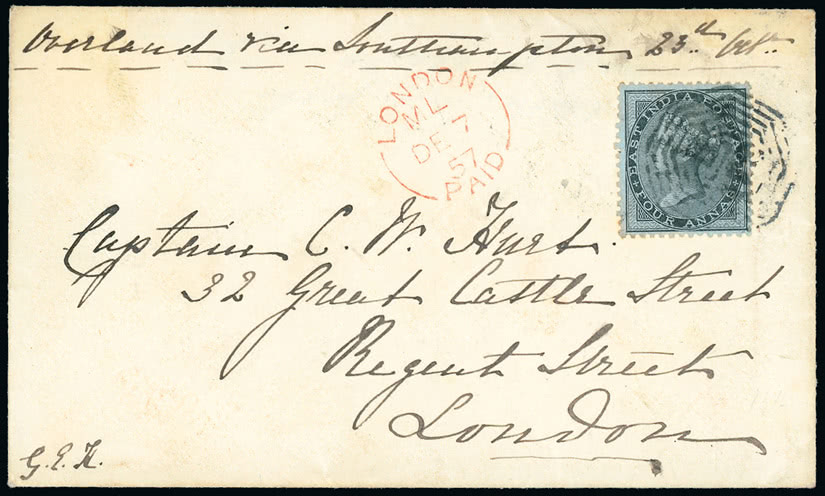 Overland via Southampton 23rd Octr.
LONDON
ML 1
DE
57
PAID
EAST INDIA POSTAGE
FOUR ANNAS
Captain C. W. Hurt.
32 Great Castle Street
Regent Street
London
G.E.H.